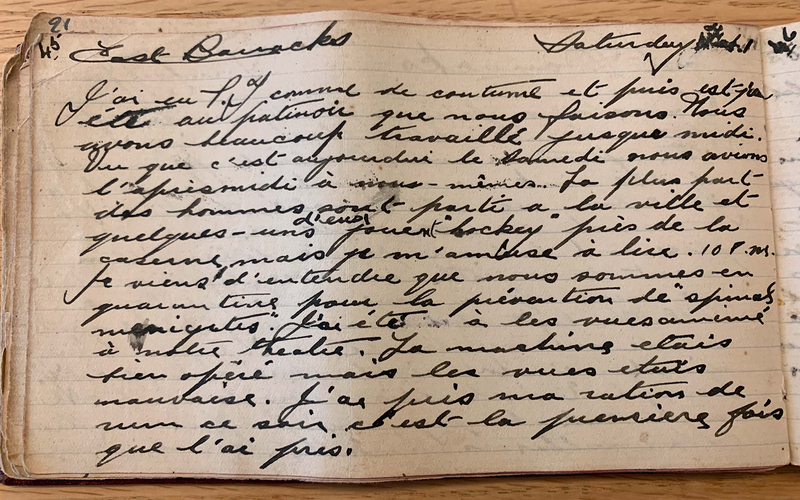 21
45
East Barracks Saturday
J'ai eu P.J comme de coutume et puis
été au patinoir que nous faisons. Nous
avons beaucoup travaillé jusque midi.
Vu que c'est aujourdui le samedi nous avions
l'apresmidi à nous-mêmes. La plus part
des hommes sont parti a la ville et
quelques-uns d'eux jouent "hockey" près de la
caserne mais je m'amuse à lire. 10 P.m.
Je viens d'entendre que nous sommes en
quarantine pour la prévention de "spinal
menigites". J'ai été à les vuesanimé
à notre theatre. La machine etais
bien opéré mais les vues etais
mauvaise. J'ai pris ma ration de
rum ce soir c'est la premiere fois
que l'ai pris.